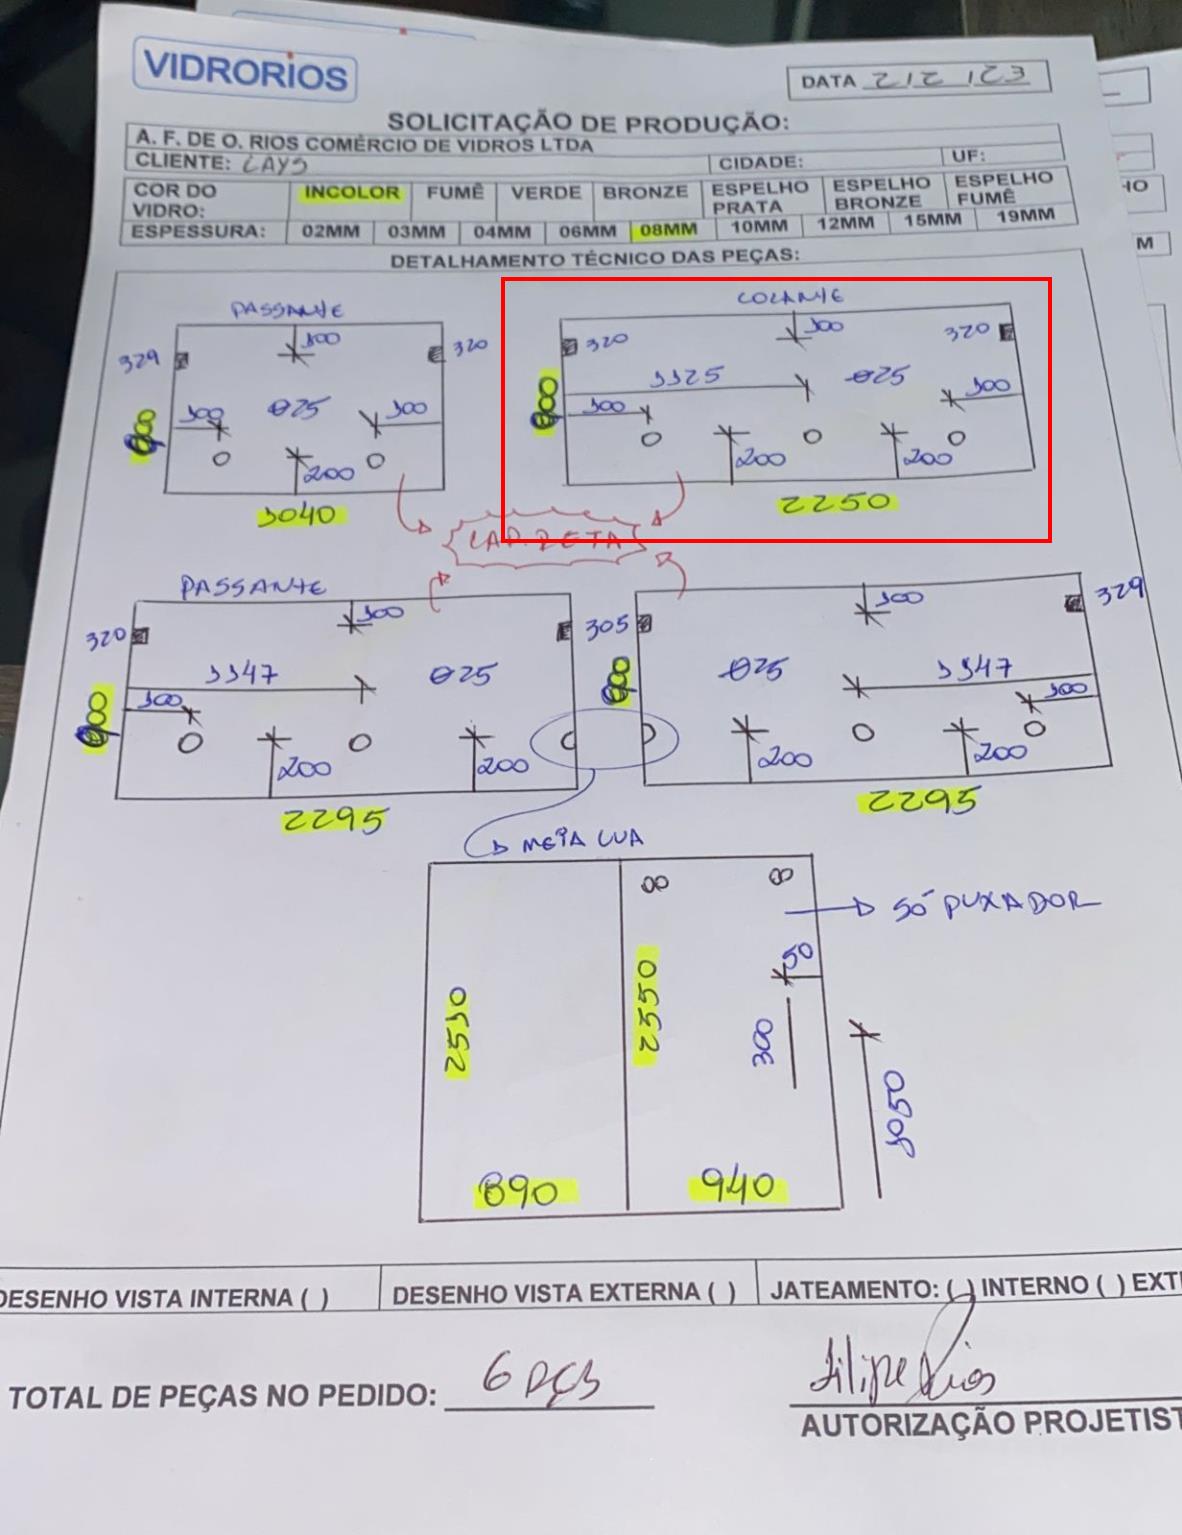 VIDRORIOS
DATA 2/2/23
SOLICITAÇÃO DE PRODUÇÃO:
A. F. DE O. RIOS COMÉRCIO DE VIDROS LTDA
CLIENTE: LAYS CIDADE: UF:
COR DO VIDRO: INCOLOR FUMÊ VERDE BRONZE ESPELHO PRATA ESPELHO BRONZE ESPELHO FUMÊ
ESPESSURA: 02MM 03MM 04MM 06MM 08MM 10MM 12MM 15MM 19MM
DETALHAMENTO TÉCNICO DAS PEÇAS:
PASSANTE
329 100 320
100 Ø25 100
200
1040
COLANTE
320 100 320
1125 Ø25
100 100
200 200
2250
LAP. RETA
PASSANTE
320 100
1147 Ø25
100
200 200
2295
305 100 329
Ø25 1147
100
200 200
2295
MEIA LUA
SÓ PUXADOR
50
2550 2550 300 1050
890 940
DESENHO VISTA INTERNA ( ) DESENHO VISTA EXTERNA ( ) JATEAMENTO: ( ) INTERNO ( ) EXT
TOTAL DE PEÇAS NO PEDIDO: 6 PÇS
Filipe Rios
AUTORIZAÇÃO PROJETIST